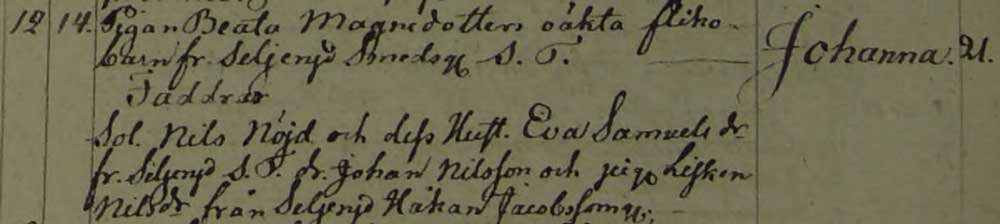 12 14. Pigan Beata Magnidotters oäkta fliko-
barn fr. Seljeryd Smedsg S. T. Johanna. 21.
Faddrar
Sol. Nils Nöjd och dess Hust. Eva Samuels dr
fr. Seljeryd S. T. dr. Johan Nilsson och pig Lisken
Nilsdr från Seljeryd Håkan Jacobssong.